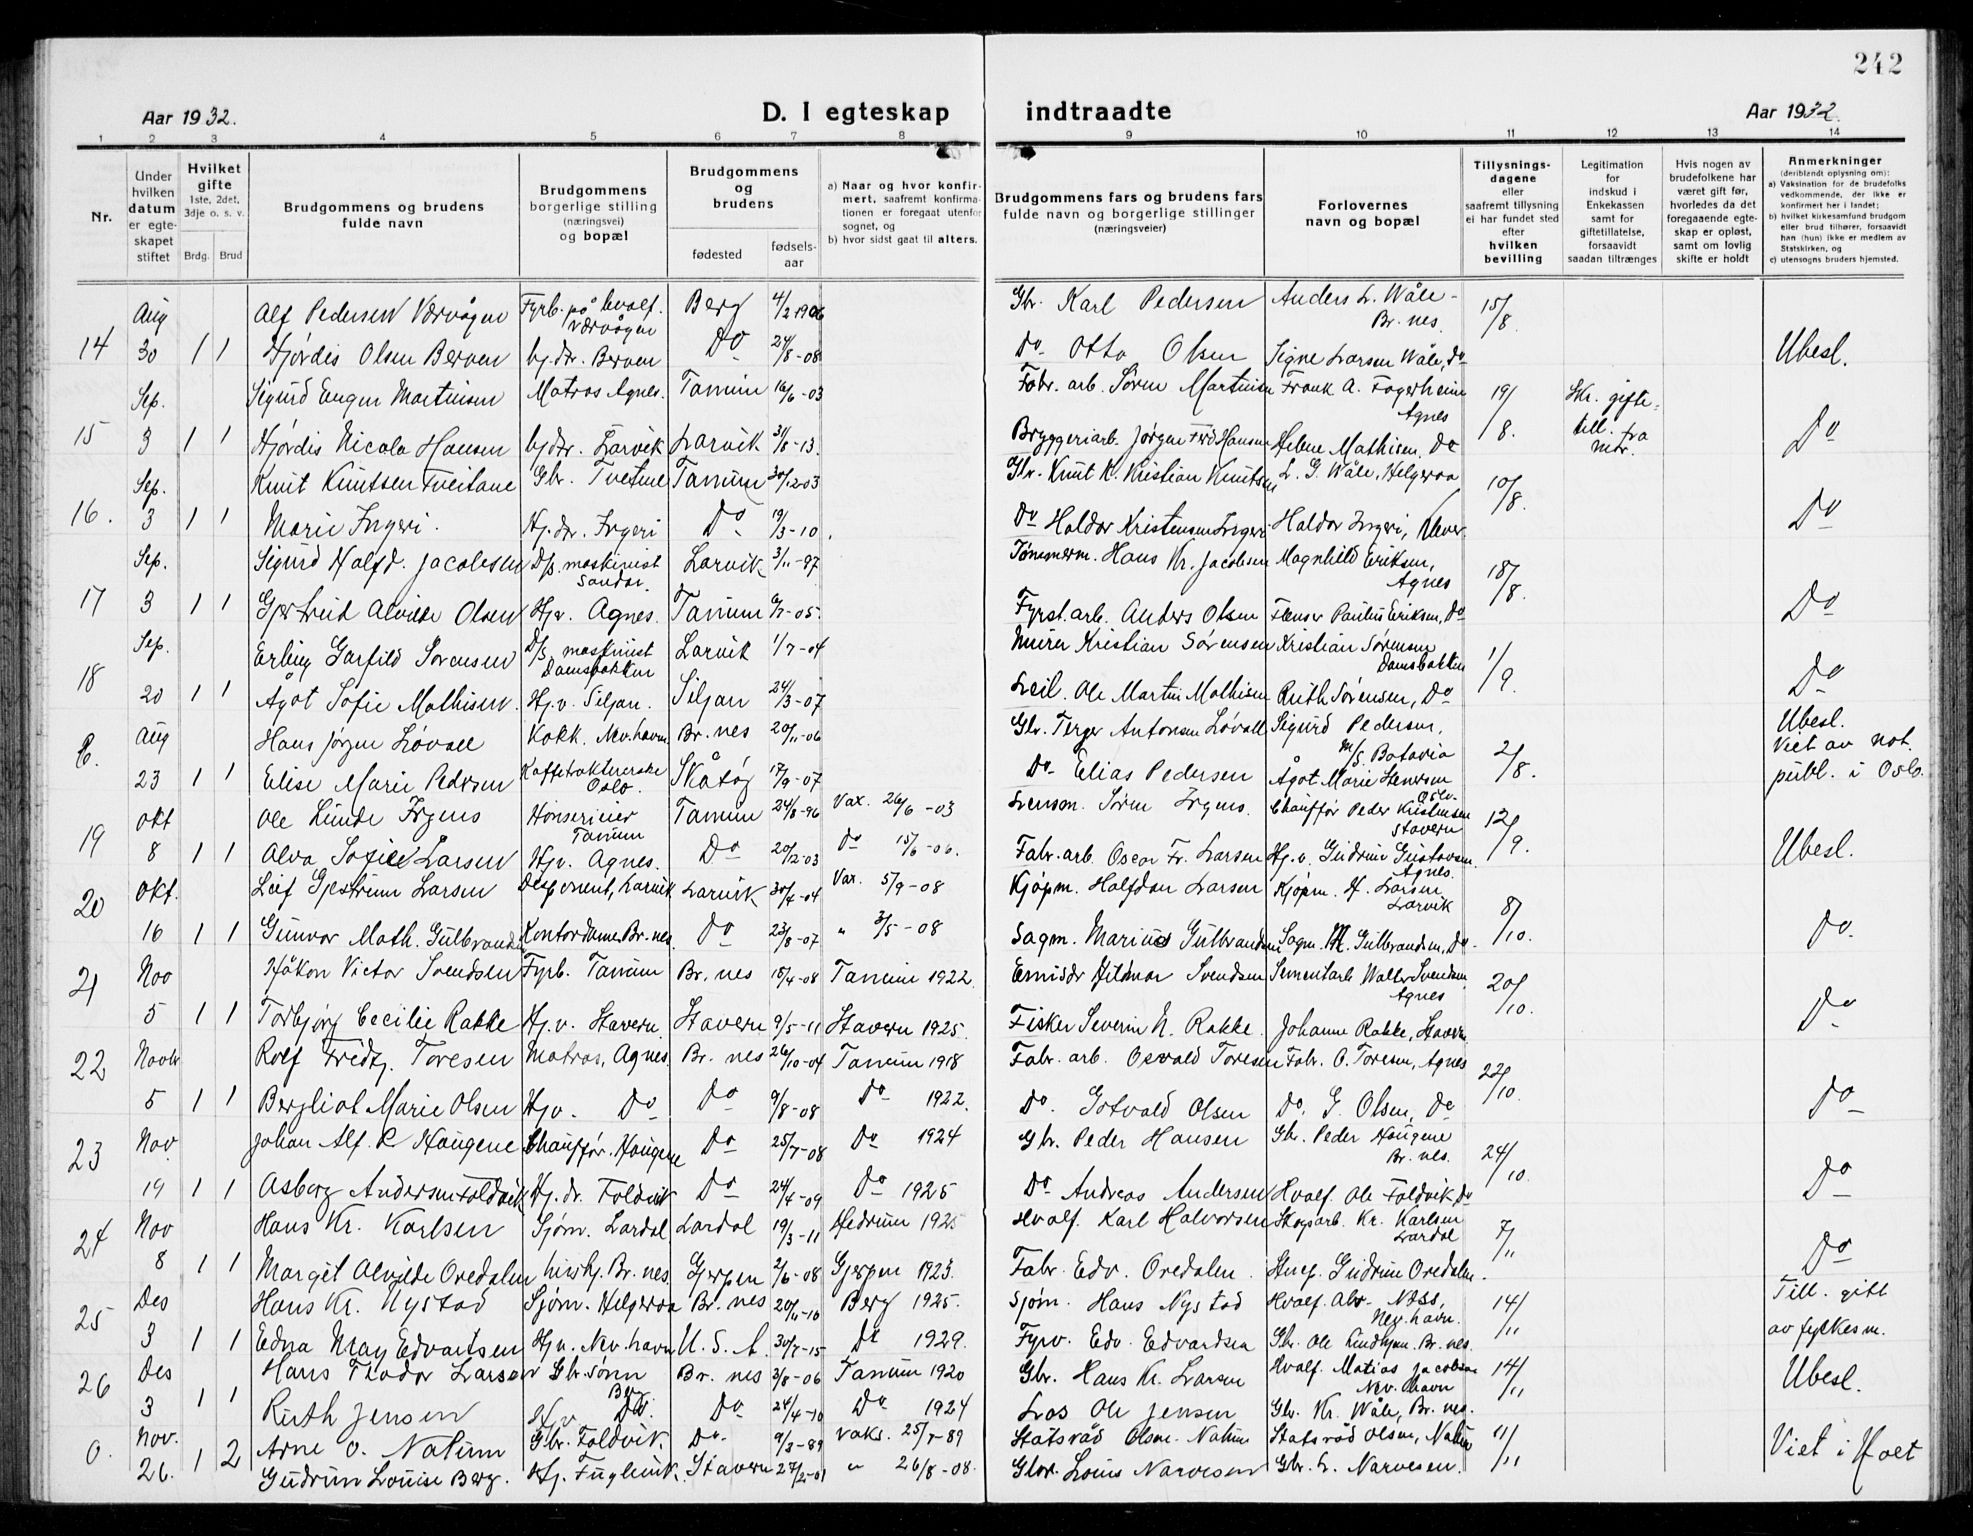 242
Aar 1932. D. I egteskap indtraadte Aar 1932.
1 2 3 4 5 6 7 8 9 10 11 12 13 14
Nr.
Under hvilken datum er egteskapet stiftet
Hvilket gifte 1ste, 2det, 3dje o. s. v. Brdg. Brud
Brudgommens og brudens fulde navn
Brudgommens borgerlige stilling (næringsvei) og bopæl
Brudgommens og brudens fødested fødselsaar
a) Naar og hvor konfirmert, saafremt konfirmationen er foregaat utenfor sognet, og
b) hvor sidst gaat til alters.
Brudgommens fars og brudens fars fulde navn og borgerlige stillinger (næringsveier)
Forlovernes navn og bopæl
Tillysningsdagene eller saafremt tillysning ei har fundet sted efter hvilken bevilling
Legitimation for indskud i Enkekassen samt for giftetillatelse, forsaavidt saadan tiltrænges
Hvis nogen av brudefolkene har været gift før, hvorledes da det foregaaende egteskap er opløst, samt om lovlig skifte er holdt
Anmerkninger (deriblandt oplysning om):
a) Vaksination for de brudefolks vedkommende, der ikke er konfirmert her i landet;
b) hvilket kirkesamfund brudgom eller brud tilhører, forsaavidt han (hun) ikke er medlem av Statskirken, og
c) utensogns bruders hjemsted.
Aug Alf Pedersen Værvågen Fyrb. på hvalf. Værvågen Berg 4/2 1906 Gbr. Karl Pedersen Anders L. Wåle - Br. nes. 15/8.
14 30 1 1 Hjørdis Olsen Berven hj. dr. Berven Do 24/8-08 Do Otto Olsen Signe Larsen Wåle, Do Ubesl.
Sep. Sigurd Eugen Martinsen Matros Agnes. Tanum 16/6-03 Fabr. arb. Søren Martinsen Frank A. Fagerheim Agnes 19/8. Skr. gifte-till. fra mor.
15 3 1 1 Hjørdis Nicola Hansen hj. dr. Larvik Larvik 31/8-13. Bryggeriarb. Jørgen Frd Hansen Helene Mathisen, Do Do
Sep. Knut Knutsen Tveitane Gbr. Tvetene Tanum 30/12-03 Gbr. Knut K. Kristian Knutsen L. G. Wåle, Helgeroa 10/8
16. 3 1 1 Marie Ingeri. Hj. dr. Ingeri Do 19/3-10. Do Haldor Kristensen Ingeri Haldor Ingeri, Do
Sep. Sigurd Halfd. Jacobsen D/s. maskinist Sandar. Larvik 3/11-97 Tømmerm. Hans Kr. Jacobsen Magnhild Eriksen, Agnes 18/8.
17 3 1 1 Gjertrud Alvilde Olsen Hj.v. Agnes. Tanum 6/7-05. Fyrst. arb. Anders Olsen Flenser Paulus Eriksen, Do Do
Sep. Erling Garfild Sørensen D/s maskinist Damsbakken Larvik 1/7-04 Murer Kristian Sørensen Kristian Sørensen Damsbakken 1/9.
18 20 1 1 Ågot Sofie Mathisen. Hj.v. Siljan. Siljan 24/3-07 Leil. Ole Martin Mathisen Ruth Sørensen, Do Do
Aug Hans Jørgen Løvall Kokk. Nev.havn Br. nes 20/11-06 Gbr. Terger Antonsen Løvall Sigurd Pedersen, M/S. Batavia 2/8. Ubesl. Viet av not. publ. i Oslo.
23 1 1 Elise Marie Pedersen Oslo. Skåtøy 17/9-07 Do Elias Pedersen Ågot Marie Oslo.
Okt Ole Lunde Irgens Hønserieier Tanum Tanum 24/8-96 Vax. 26/6-03 Søren Irgens. Chauffør Peder Kristensen Stavern 12/9.
19 8 1 1 Alva Sofie Larsen Hj.v. Agnes. Do 20/12-03 Do 15/6-06. Fabr. arb. Oscar Fr. Larsen Hj.v. Gudrun Gustavsen. Agnes. Ubesl.
20 Okt. Leif Gjestrum Larsen Disponent, Larvik Larvik 30/4-04 Vax. 5/9-08 Kjøpm. Halfdan Larsen Kjøpm. H. Larsen Larvik 8/10.
16 1 1 Gunvor Math. Gulbrandsen Kontordame Br. nes. Do 23/8-07 " 3/5-08 Sagm. Marius Gulbrandsen Sagm. M. Gulbrandsen, Do Do
21 Nov Håkon Victor Svendsen Fyrb. Tanum Br. nes 15/4-08 Tanum 1922. Hilmar Svendsen Sementarb. Walter Svendsen, Agnes 20/10.
5 1 1 Torbjørg Cecilie Rakke Hj.v. Stavern Stavern 9/5-11 Stavern 1925. Fisker Severin N. Rakke. Johanne Rakke, Stavern Do
22 Novbr Rolf Fredtj. Toresen Matros, Agnes. Br. nes 26/10-04 Tanum 1918 Fabr. arb. Oswald Toresen Fabr. O. Toresen, Agnes 22/10.
5 1 1 Bergliot Marie Olsen Hjv. Do Do 9/8-08 Do 1922. Do. Gotvald Olsen Do. G. Olsen, Do Do
23 Nov. Johan Alf. R Haugene Chauffør. Haugene Do 25/7-08 Do 1924 Gbr. Peder Hansen Gbr. Peder Haugene Br. nes. 24/10.
19 1 1 Asberg Andersen Foldvik Hj. dr. Foldvik Do 24/4-09 Do 1925 Do Andreas Andersen Hvalf. Ole Foldvik Do Do
24 Nov Hans Kr. Karlsen Sjøm. Lardal Lardal 19/3-11 Hedrum 1925 Hvalf. Karl Halvorsen Skogsarb. Kr. Karlsen Lardal 7/11
8 1 1 Margit Alvilde Oredalen hushj. Br. nes. Gjerpen 2/6-08 Gjerpen 1923. Fabr. Edv. Oredalen. Gudrun Oredalen. Do
25 Des Hans Kr. Nystad Sjøm. Helgeroa Br. nes 20/11-10 Berg 1925. Sjøm. Hans Nystad Hvalf. Alv. Næss, Nev.havn. 14/11 Till. gitt av fylkesm.
3 1 1 Edna May Edvartsen Hj.v. Nev.havn U. S. A. 30/7-15 Do 1929. Fyrv. Edv. Edvardsen Gbr. Ole Lindhjem, Br. nes.
26 Des Hans Thodor Larsen Gbr. sønn Berg Br. nes 3/8-06 Tanum 1920 Gbr. Hans Kr. Larsen Hvalf. Matias Jacobsen Nev. havn 14/11 Ubesl.
3 1 1 Ruth Jensen Hj.v Do. Do 24/4-10 Do 1924 Los Ole Jensen Gbr. Kr. Wåle, Br. nes.
0. Nov. Arne O. Nalum Gbr. Foldvik. Do. 9/3-89 Vaks. 25/7-89 Statsråd Olsen Nalum Statsråd Olsen, Nalum 11/11 Viet i Hof
26. 1 2 Gudrun Louise Berg. Hj. Stavern 27/2-01 " 26/8-08. Gbr. Louis Narvesen Gbr. L. Narvesen.